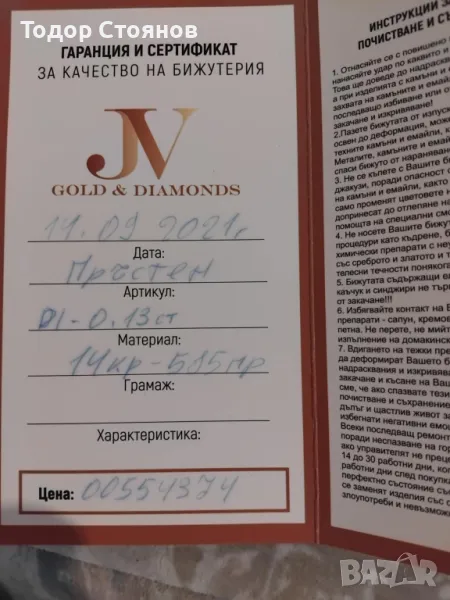 Тодор Стоянов
ГАРАНЦИЯ И СЕРТИФИКАТ
ЗА КАЧЕСТВО НА БИЖУТЕРИЯ
JV
GOLD & DIAMONDS
11.09 2021г
Дата:
Пръстен
Артикул:
DI-0.13ct
Материал:
14кр-585пр
Грамаж:
Характеристика:
Цена: 00554374
ИНСТРУКЦИИ
ПОЧИСТВАНЕ И
1. Отнасяйте се с повишено
нанасяйте удар по каквито и
Това ще доведе до надраскан
а при изделията с камъни и
захвата на камъните и емайл
последващо избиване или от
закачане и изкривяване!
2.Пазете бижутата от изпуск
освен до деформация, може
техните камъни и емайли, к
Металите, камъните и емай
спаси бижуто от наранявані
3. Не се къпете с Вашите б
джакузи, поради опасност о
на камъни и емайли, както
само променят цветовете н
допринасят до отлепяне на
помощта на специални смо
4. Не носете Вашите бижу
процедури като къдрене, б
химически препарати с неу
със среброто и златото и т
телесни течности пониког
5. Бижутата съдържащи ем
каучук и синджири не тър
от закачане!!!
6. Избягвайте контакт на Б
препарати - сапун, кремов
петна. Не перете, не мийт
изпълнение на домакинск
7. Вдигането на тежки пре
да деформират Вашето б
надрасквания и изкривява
закачане и късане на Ваш
сме, че ако спазвате тези
почистване и съхранение
дълъг и щастлив живот з
избегнати негативни емоц
Всеки последващ ремонт
поради неспазване на гор
ако управителят не прец
14 до 30 работни дни, ко
работни дни след покупк
перфектно състояние съ
се заменят изделия със с
злоупотреби и невъзмож
BAZAR